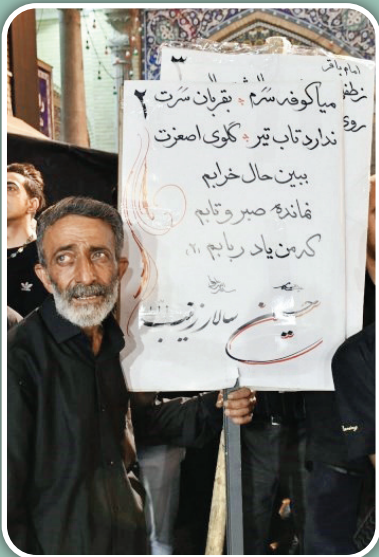 امام باقر
۳
روی
۲ میا کوفه سرم ؛ بقربان سرت
ندارد تاب تیر ؛ گلوی اصغرت
ببین حال خرابم
نمانده صبر و تابم
که من یاد ربابم (۲)
حسین سالار زینب